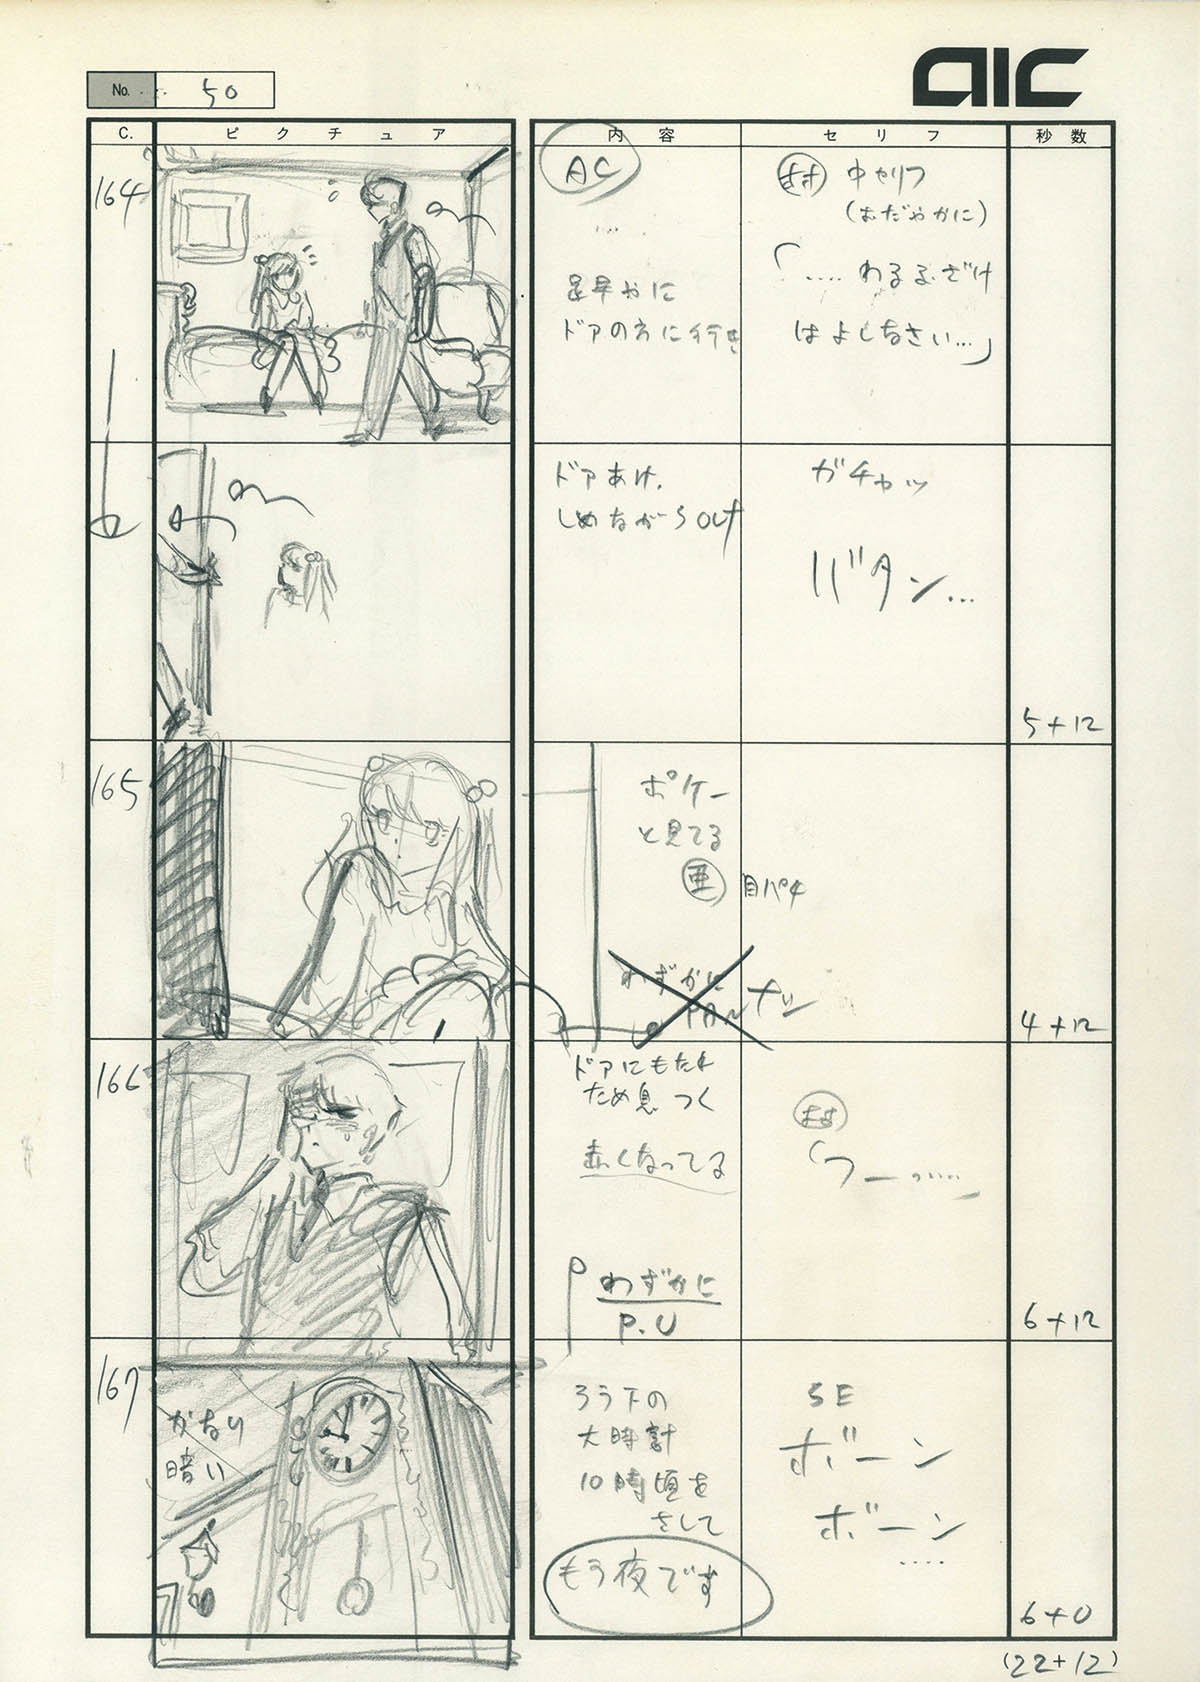 No. 50
aic
C. ピクチュア 内容 セリフ 秒数
164
AC
足早やに
ドアの方に行き
中セリフ
(おだやかに)
「....わるふざけ
はよしなさい…」
ドアあけ、
しめながらOUT
ガチャッ
バタン…
5+12
165
ポケー
と見てる
亜 目パチ
わずかに
PAN ナシ
4+12
166
ドアにもたれ
ため息つく
赤くなってる
わずかに
P.U
「フー……」
6+12
167
かなり
暗い
ろう下の
大時計
10時頃を
さして
もう夜です
SE
ボーン
ボーン
....
6+0
(22+12)